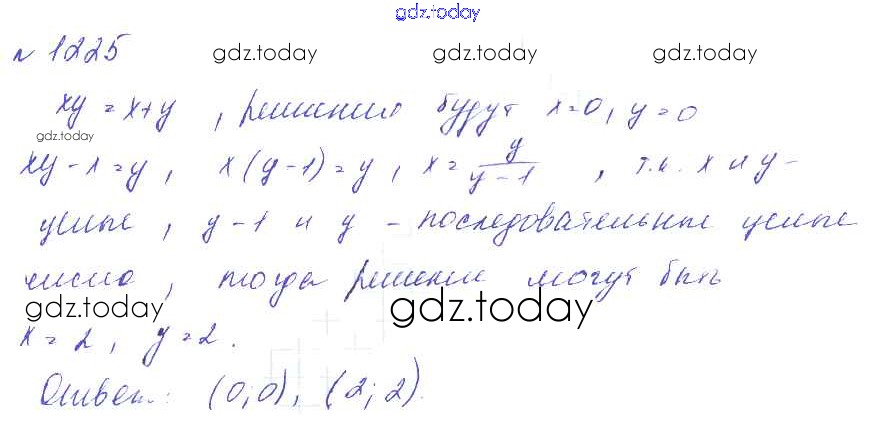 gdz.today
№ 1225 gdz.today gdz.today gdz.today
xy = x+y , решением будут x=0, y=0
gdz.today
xy - x = y , x(y-1) = y , x = y/(y-1) , т.к. x и y -
целые , y-1 и y - последовательные целые
число , тогда решение могут быть
gdz.today gdz.today
x = 2 , y = 2 .
Ответ: (0;0), (2;2).